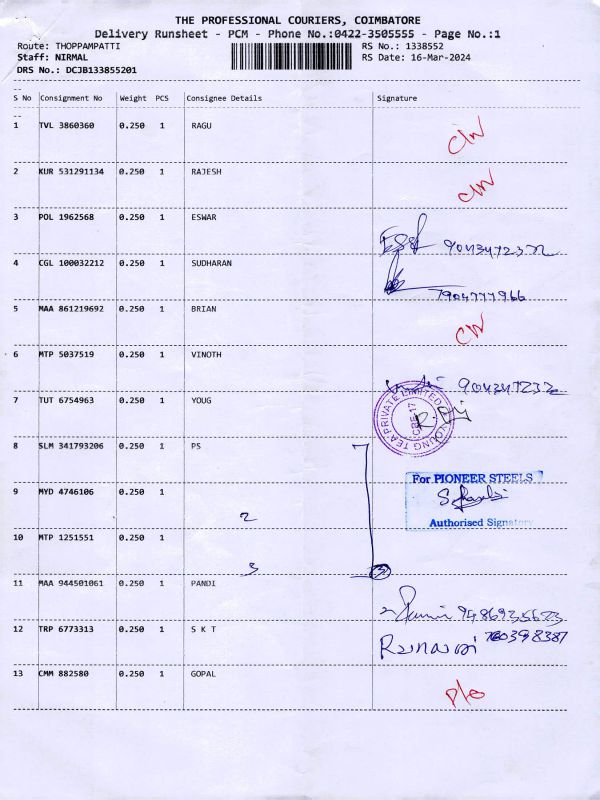 THE PROFESSIONAL COURIERS, COIMBATORE
Delivery Runsheet - PCM - Phone No.:0422-3505555 - Page No.:1
Route: THOPPAMPATTI RS No.: 1338552
Staff: NIRMAL RS Date: 16-Mar-2024
DRS No.: DCJB133855201
S No Consignment No Weight PCS Consignee Details Signature
1 TVL 3860360 0.250 1 RAGU
2 KUR 531291134 0.250 1 RAJESH
3 POL 1962568 0.250 1 ESWAR
4 CGL 100032212 0.250 1 SUDHARAN
7904777966
5 MAA 861219692 0.250 1 BRIAN
6 MTP 5037519 0.250 1 VINOTH
7 TUT 6754963 0.250 1 YOUG
YOUNG TEA PRIVATE LIMITED
CBE-17
8 SLM 341793206 0.250 1 PS
For PIONEER STEELS
9 MYD 4746106 0.250 1
2
Authorised Signatory
10 MTP 1251551 0.250 1
3 3
11 MAA 944501061 0.250 1 PANDI
9486935623
12 TRP 6773313 0.250 1 S K T
13 CMM 882580 0.250 1 GOPAL